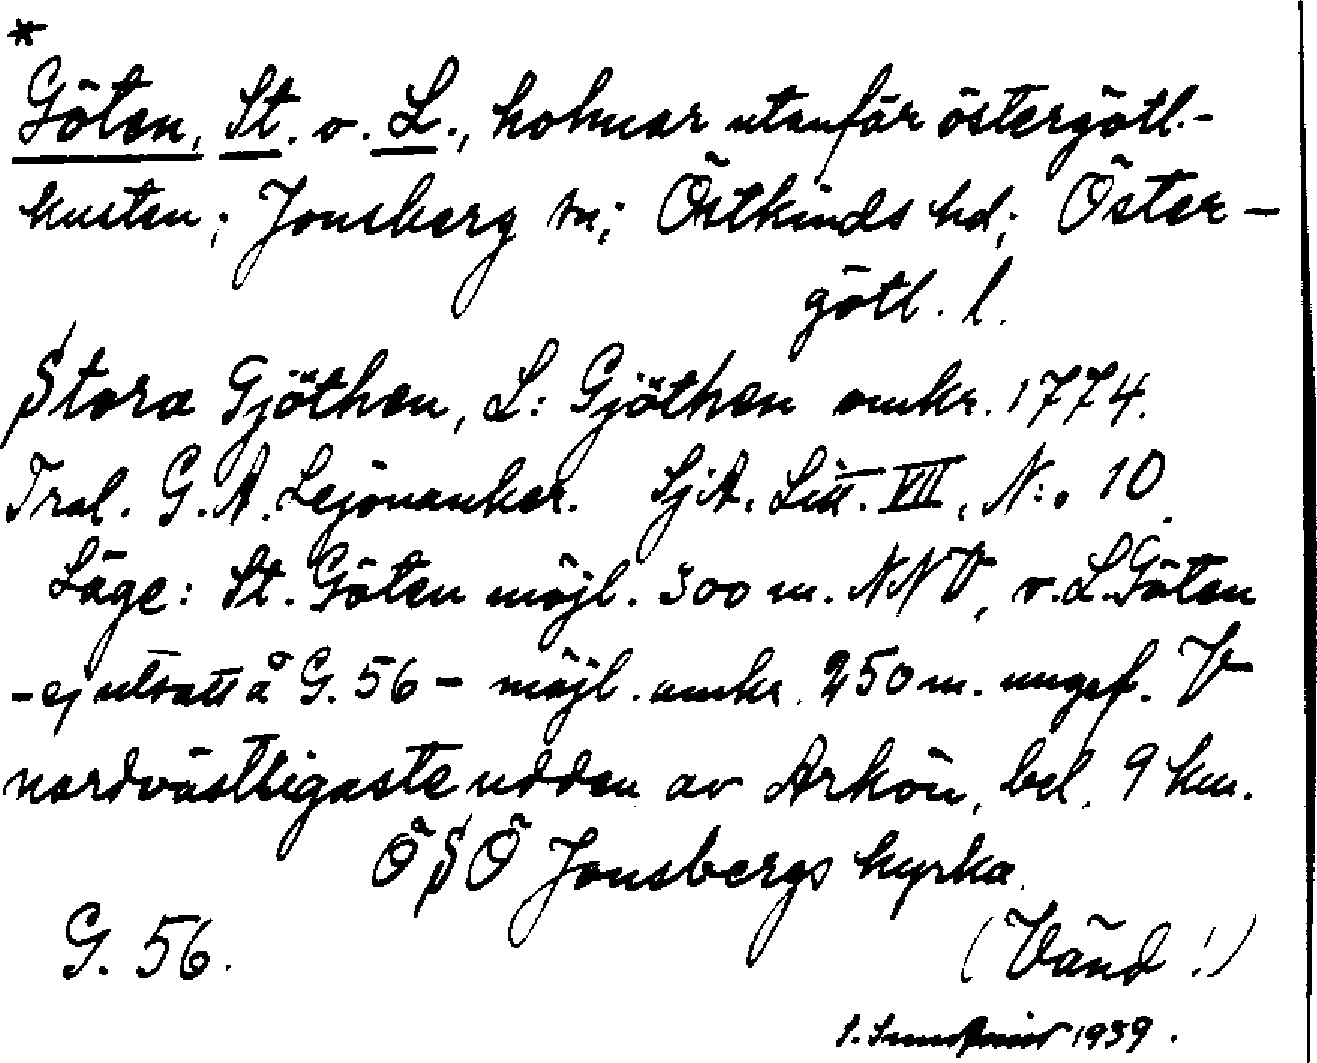 *
Göten, St. o. L., holmar utanför östergötl.-
kusten; Jonsberg sn; Östkinds hd; Öster-
götl. l.
Stora Gjöthen, L: Gjöthen omkr. 1774.
Tral. G. A. Lejonanker. SjA. Litt. VII, N:o 10.
Läge: St. Göten möjl. 300 m. NNV, v. L. Göten
- ej utsatt å G. 56 - möjl. omkr. 250 m. ungef. V
nordvästligaste udden av Arkön, bel. 9 km.
ÖSÖ Jonsbergs kyrka.
G. 56.
(Vänd!)
1939.